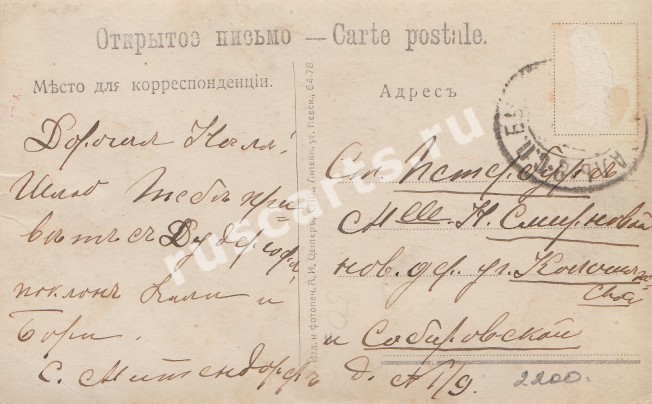 Открытое письмо — Carte postale.
Мѣсто для корреспонденціи.
Дорогая Каля!
Шлю Тебѣ при-
вѣтъ съ Дудергофа,
поклонъ Кали и
Бори.
С. Миттендорфъ
Изд. и фотопеч. А. И. Центеръ, С.П.Б. Литейн. уг. Невск., 64-78
Адресъ
Ст. Петербургъ
Mlle. Н. Смирновой
нов. дер. уг. Коломяж-
ской
и Сабировской
д. № 1/9.
2200.
ruscarts.ru